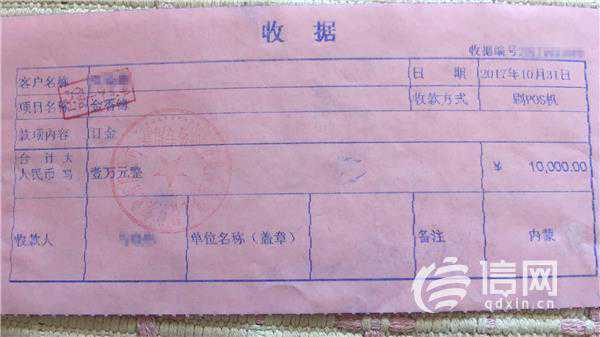 收 据
收据编号
客户名称 日 期 2017年10月31日
项目名称 收款方式 刷POS机
款项内容 订金
合 计 大 壹万元整 ¥ 10,000.00
人民币 写
收款人 单位名称(盖章) 备注 内蒙
信网
qdxin.cn